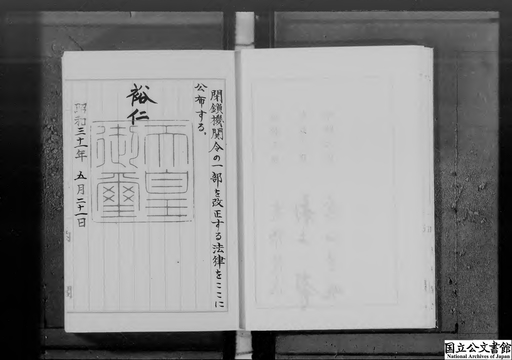 閉鎖機関令の一部を改正する法律をここに
公布する。
裕仁
天皇
御璽
昭和三十一年五月二十一日
国立公文書館
National Archives of Japan